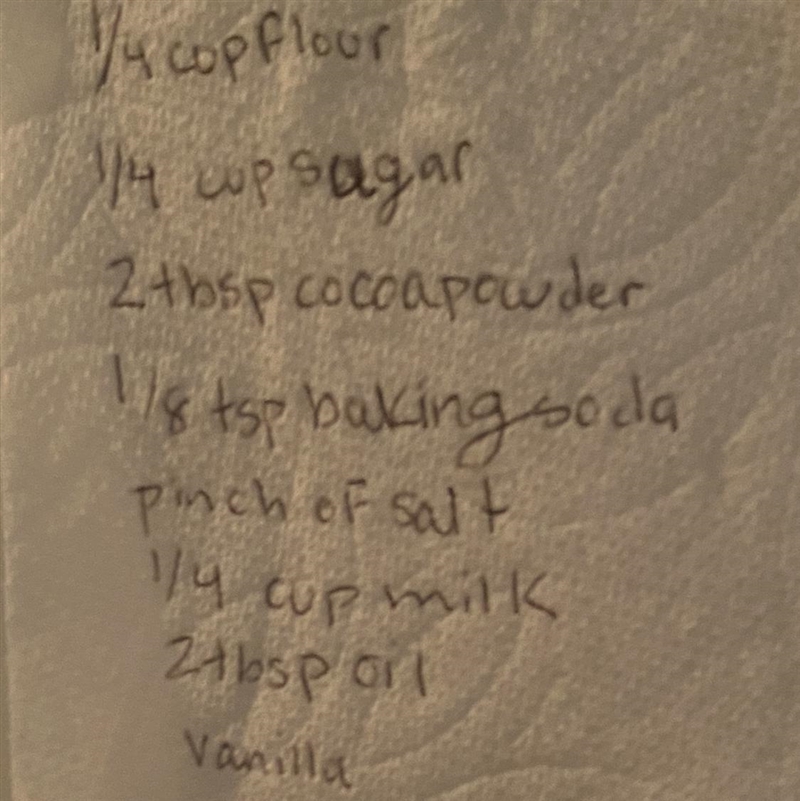 1/4 cup flour
1/4 cup sugar
2 tbsp cocoa powder
1/8 tsp baking soda
pinch of salt
1/4 cup milk
2 tbsp oil
vanilla